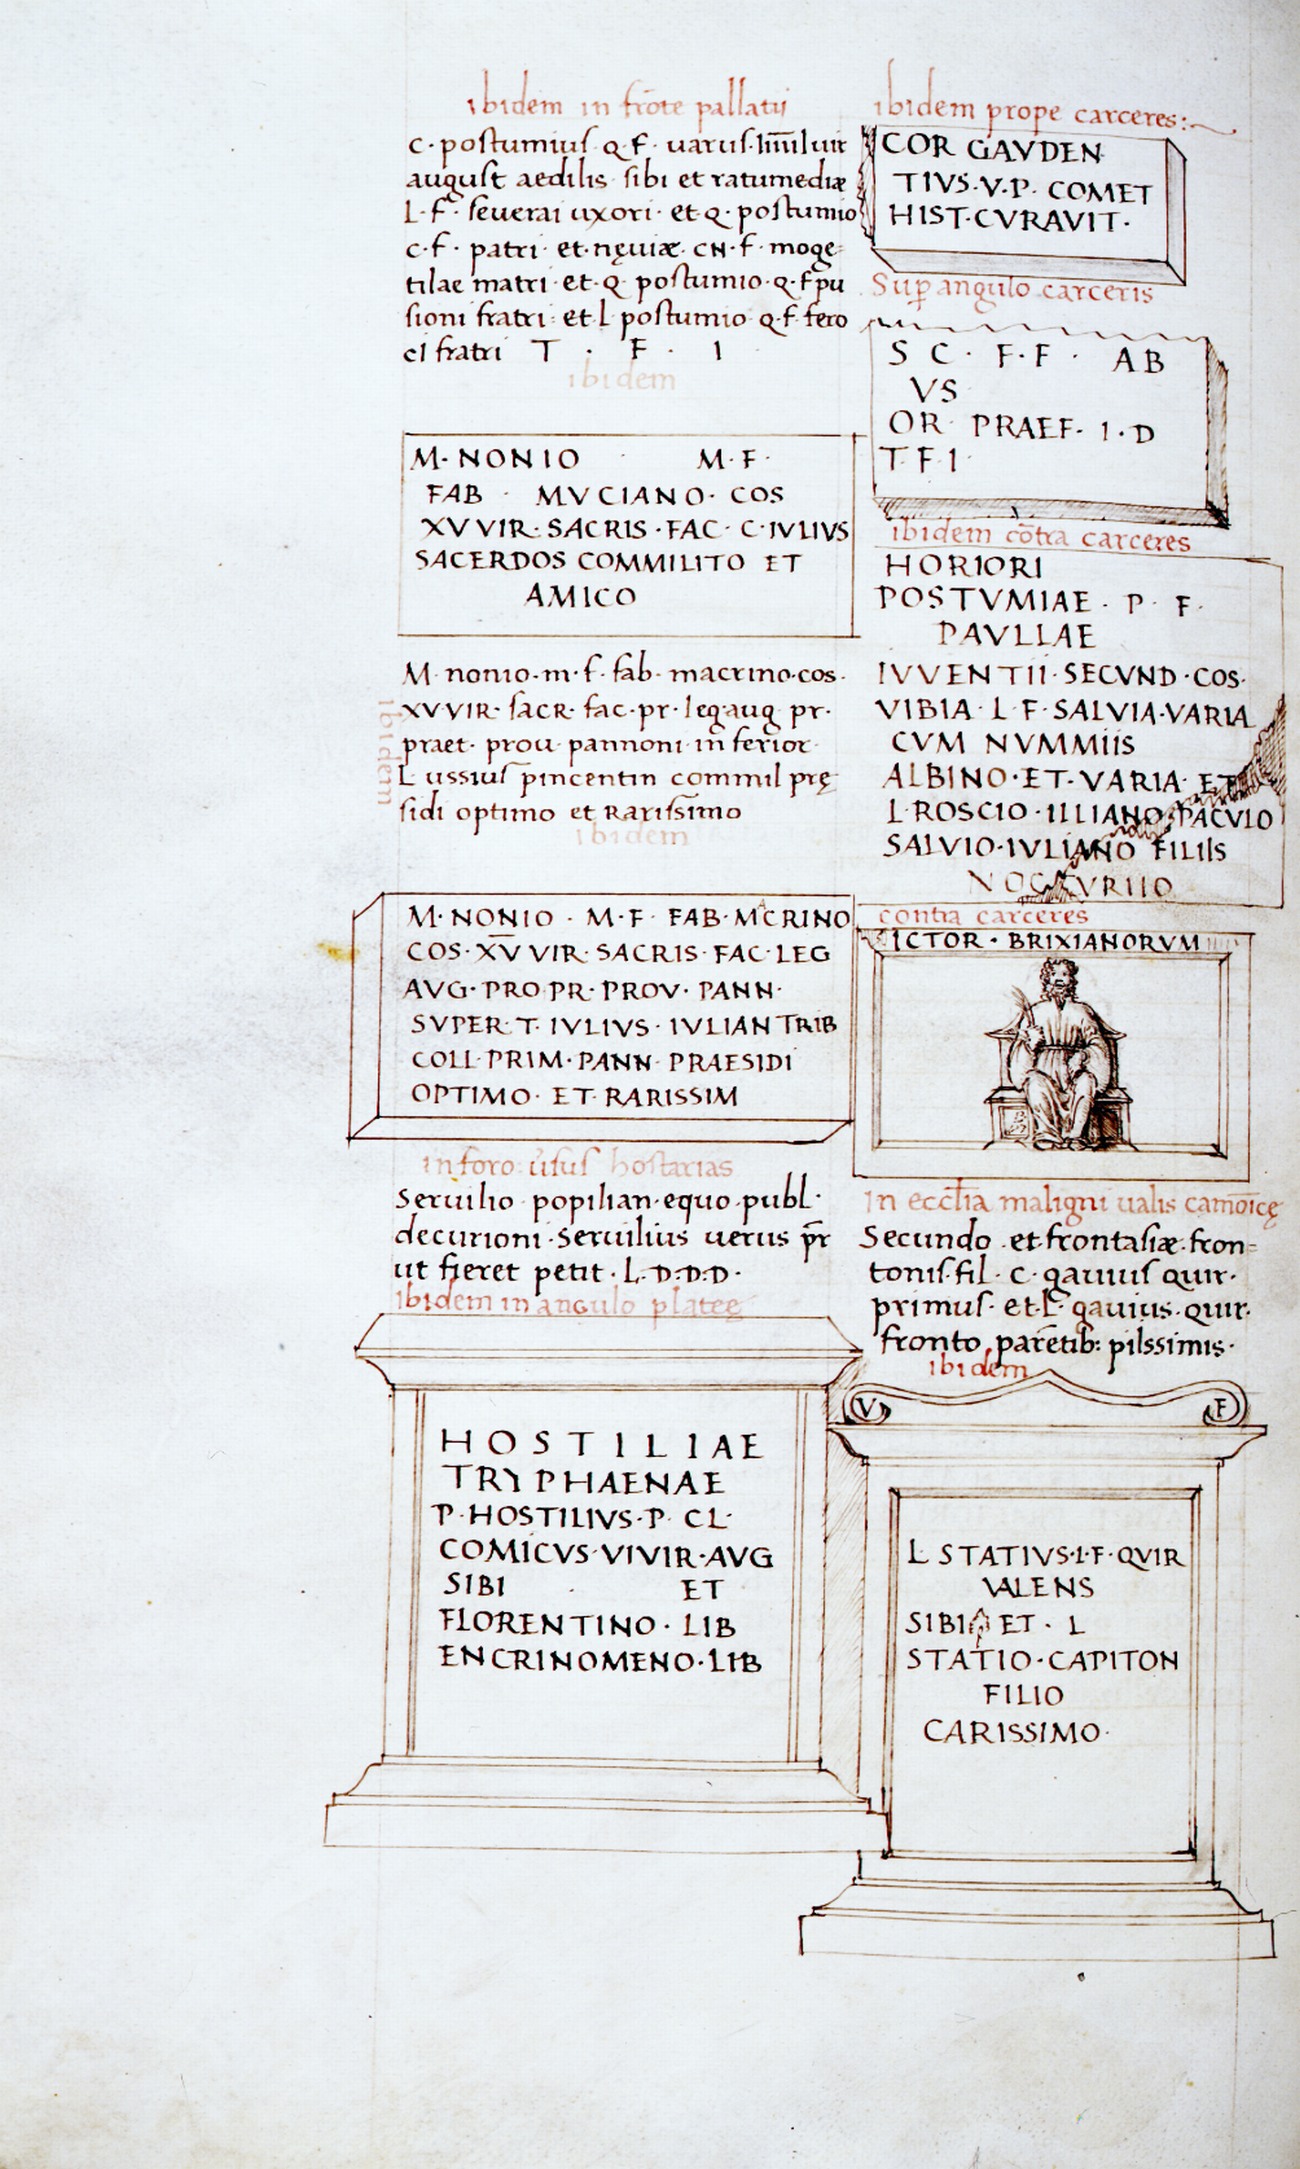 ibidem in frōte pallatii
C · postumius · Q · F · varus · IIIIIIvir
august aedilis sibi et ratumediæ
L · F · severai uxori · et · Q · postumio
c · f · patri · et · nęviæ · CN · f · moge=
tilae matri · et · Q · postumio · Q · f · pu
sioni fratri · et L postumio Q · f · fero
ci fratri T · F · I
ibidem
M · NONIO · M · F ·
FAB · MVCIANO · COS
XV VIR · SACRIS · FAC · C · IVLIVS
SACERDOS COMMILITO ET
AMICO
ibidem
M · nonio · m · f · fab · macrino · cos ·
XV VIR · sacr · fac · pr · leg · aug pr ·
praet · prou · pannoni · in ferior ·
L ussius pincentin commil prę
sidi optimo et Rarissimo
ibidem
M · NONIO · M · F · FAB · MACRINO
COS · X̄V̄ VIR · SACRIS · FAC · LEG
AVG · PRO PR · PROV · PANN ·
SVPER · T · IVLIVS · IVLIAN TRIB
COLL · PRIM · PANN · PRAESIDI
OPTIMO · ET · RARISSIM
in foro: ūsus hostarias
Servilio popilian · equo publ ·
decurioni · Servilius verus pr̄
ut fieret petit · L · D · D · D ·
ibidem in angulo plateę
HOSTILIAE
TRYPHAENAE
P · HOSTILIVS · P · CL ·
COMICVS · VIVIR · AVG
SIBI · ET
FLORENTINO · LIB
ENCRINOMENO · LIB
ibidem prope carceres:
COR GAVDEN
TIVS · V · P · COMET
HIST · CVRAVIT ·
Sup̄ angulo carceris
S C · F · F · AB
VS
OR PRAEF · I · D
T F I ·
ibidem cōtra carceres
HORIORI
POSTVMIAE · P · F ·
PAVLLAE
IVVENTII · SECVND · COS ·
VIBIA · L · F · SALVIA · VARIA
CVM NVMMIIS
ALBINO · ET · VARIA · ET
L · ROSCIO · IILIANO PACVLO
SALVIO · IVLIANO FILIIS
NOCTVRIIO
contra carceres
ICTOR · BRIXIANORVM
In eccl̄ia maligni ualis camōicę
Secundo · et · frontasiæ · fron=
tonis · fil · C · gavius quir ·
primus · et · L · gavius · quir ·
fronto parētib: piissimis ·
ibidem
V F
L STATIVS · L · F · QVIR
VALENS
SIBI ET · L
STATIO · CAPITON
FILIO
CARISSIMO ·